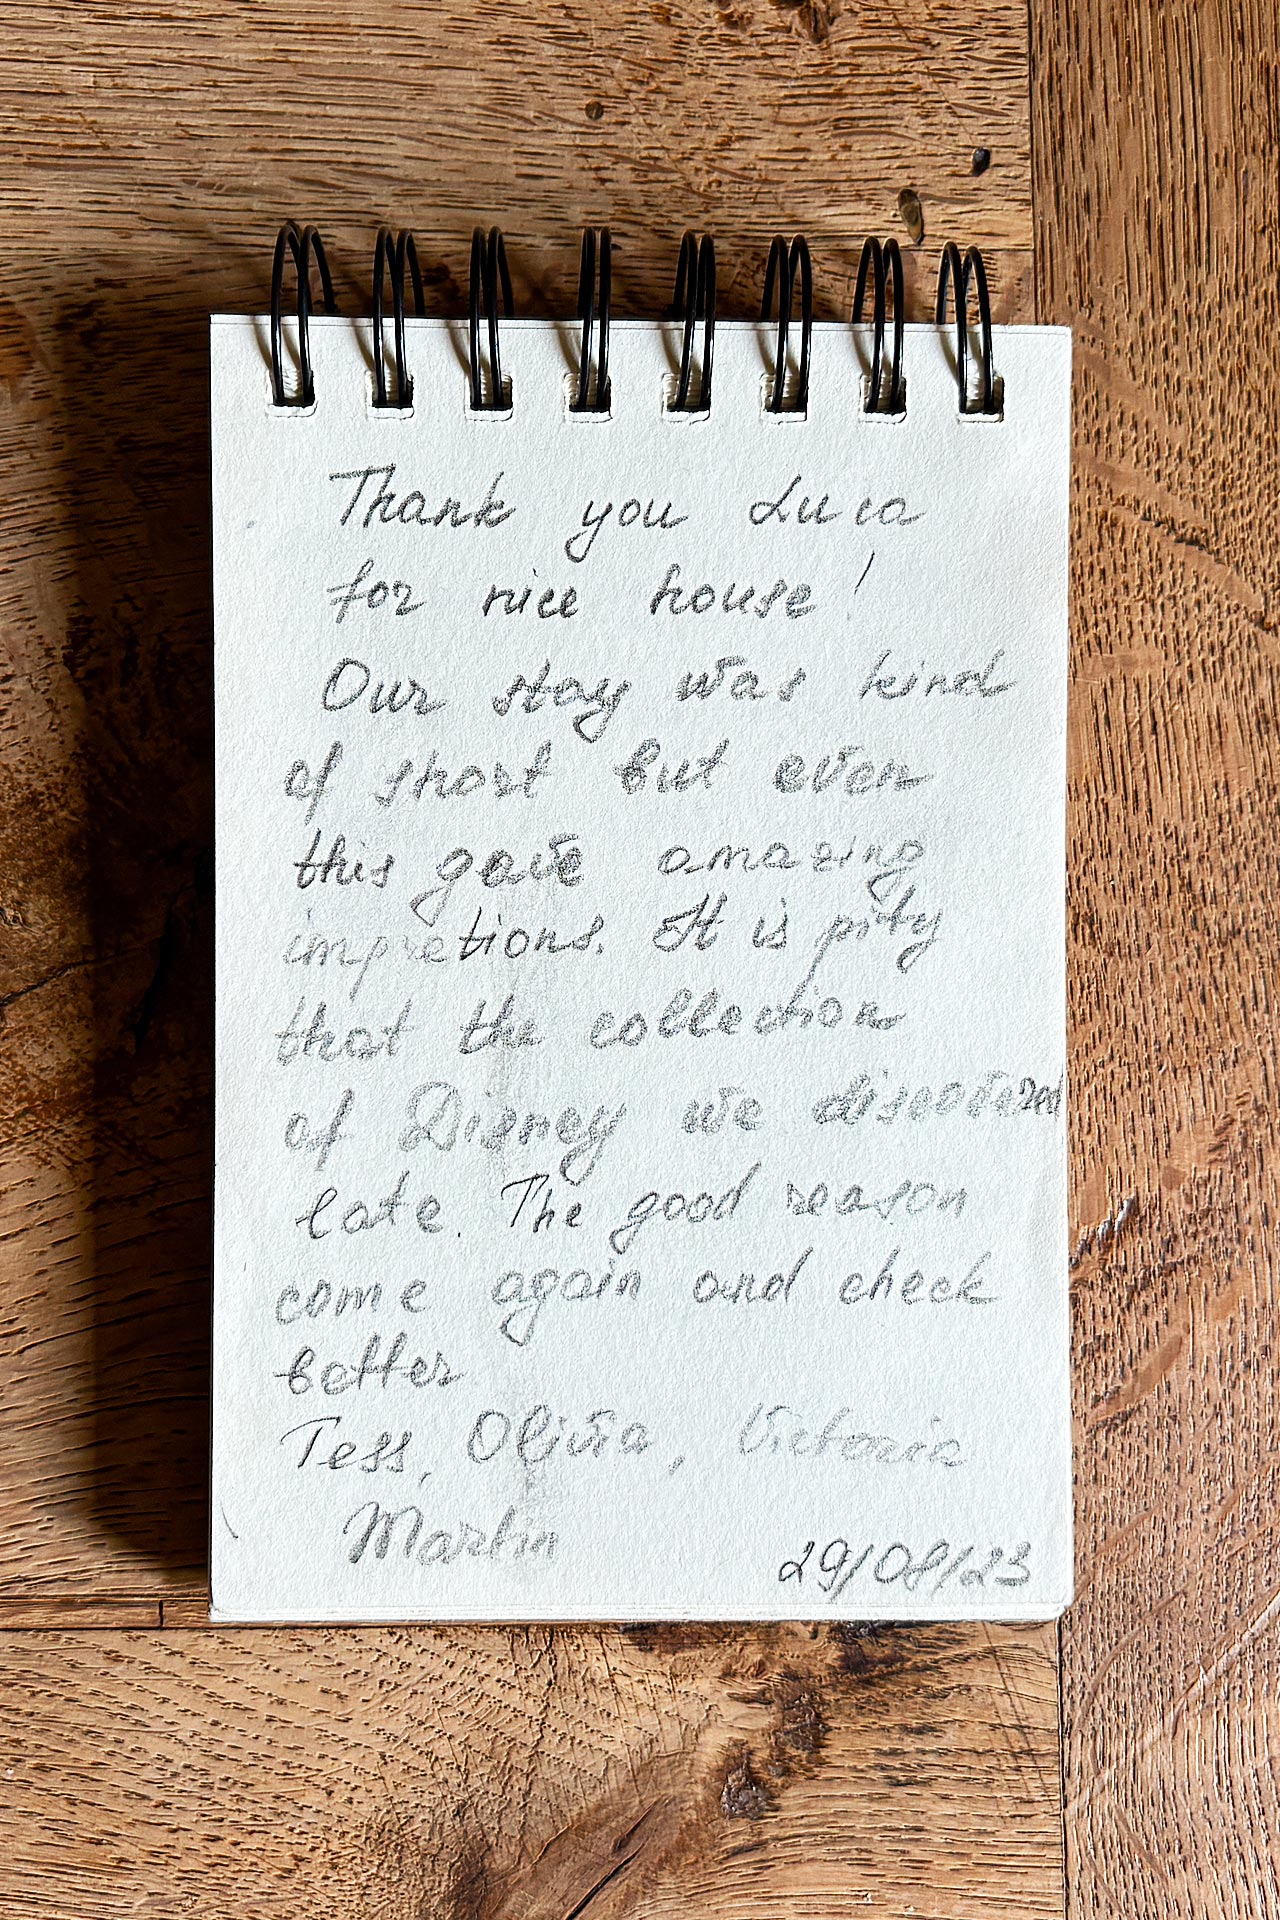 Thank you Luca
for nice house!
Our stay was kind
of short but even
this gave amazing
impretions. It is pity
that the collection
of Disney we discovered
late. The good reason
come again and check
better
Tess, Olivia, Victoria
Martin
29/08/23